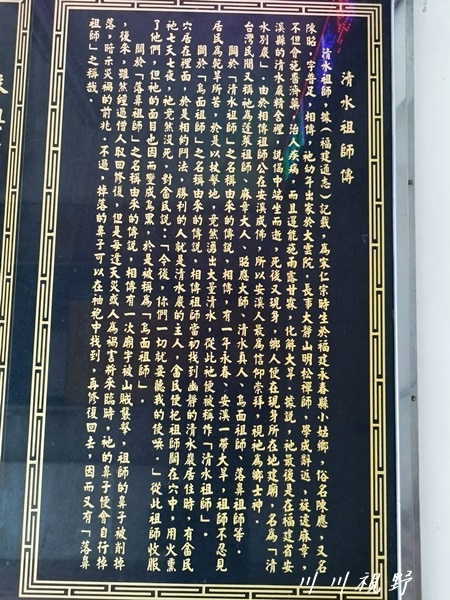 清水祖師傳
清水祖師，據（福建通志）記載，為宋仁宗時生於福建永春縣小姑鄉，俗名陳應，又名
陳昭，字普足，相傳，祂幼年出家於大雲院，長事大靜山明松禪師，學成辭返，旋遞麻章，
不但會施醫濟藥，治人疾病，而且還能施雨露甘霖，化解大旱，據說，祂最後是在福建省安
溪縣的清水巖精舍裡，說偈中端坐而逝，死後又現身，鄉人便在現身所在地建廟，名為「清
水別巖」。由於相傳祖師公在安溪成佛，所以安溪人最為信仰崇拜，視祂為鄉土神。
台灣民間又稱祂為蓬萊祖師、麻章大人、昭應大師、清水真人、烏面祖師、落鼻祖師等。
關於「清水祖師」之名稱由來的傳說，相傳，有一年永春、安溪一帶大旱，祖師不忍見
居民為乾旱所苦，於是以杖擊地，竟然湧出大量清水，從此祂便被稱作「清水祖師」。
關於「烏面祖師」之名稱由來的傳說，相傳祖師當初找到幽靜的清水巖居住時，有畬民
穴居在裡面，於是相約鬥法，勝利的人就是清水巖的主人，畬民便把祖師關在穴中，用火熏
祂七天七夜，祂竟然沒死，對畬民說：「今後，你們一切就要聽我的使喚。」從此祖師收服
了他們，但祂的面目也因而變成烏黑，於是被稱為「烏面祖師」。
關於「落鼻祖師」之名稱由來的傳說，相傳有一次廟宇被山賊襲擊，祖師的鼻子被削掉
，後來，雖然經過僧人取回修復，但是每逢天災或人為禍害將來臨時，祂的鼻子便會自行掉
落，暗示災禍的前兆。不過，掉落的鼻子可以在袖袍中找到，再修復回去，因而又有「落鼻
祖師」之稱哉。
川川視野